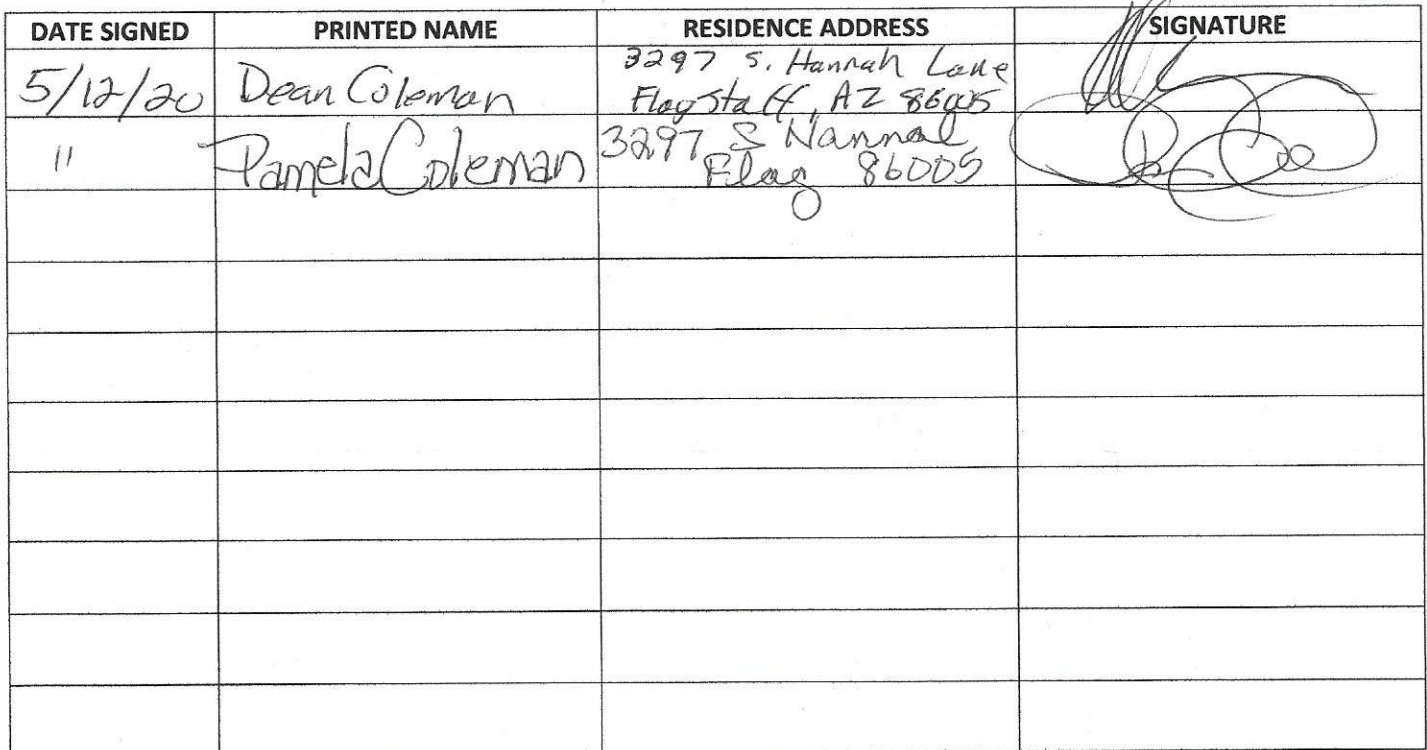 DATE SIGNED PRINTED NAME RESIDENCE ADDRESS SIGNATURE
5/12/20 Dean Coleman 3297 S. Hannah Lane
Flagstaff, AZ 86005
" Pamela Coleman 3297 S Hannah
Flag 86005